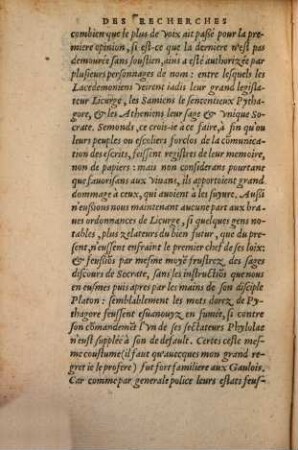 DES RECHERCHES
combien que le plus de voix ait passé pour la pre-
miere opinion, si est-ce que la derniere n'est pas
demourée sans soustien, ains a esté authorizée par
plusieurs personnages de nom: entre lesquels les
Lacedemoniens veirent iadis leur grand legisla-
teur Licurge, les Samiens le sencentieux Pytha-
gore, & les Atheniens leur sage & vnique So-
crate. Semonds, ce crois-ie a ce faire, à fin qu'ou
leurs peuples ou escoliers forclos de la cõmunica-
tion des escrits, feissent registres de leur memoire,
non de papiers: mais non considerans pourtant
que fauorisans aux viuans, ils apportoient grand
dommage à ceux, qui auoient à les suyure. Aussi
n'eussions nous maintenant aucune part aux bra-
ues ordonnances de Licurge, si quelques gens no-
tables, plus zelateurs du bien futur, que du pre-
sent, n'eussent enfraint le premier chef de ses loix:
& feussiõs par mesme moyẽ frustrez des sages
discours de Socrate, sans les instructiõs que nous
en eusmes puis apres par les mains de son disciple
Platon: semblablement les mots dorez de Py-
thagore feussent esuanouyz en fumée, si contre
son cõmandemẽt l'vn de ses sectateurs Phylolae
n'eust supplée à son default. Certes ceste mes-
me coustume (il faut qu'auecques mon grand re-
gret ie le profere) fut fort familiere aux Gaulois.
Car comme par generale police leurs estats feus-